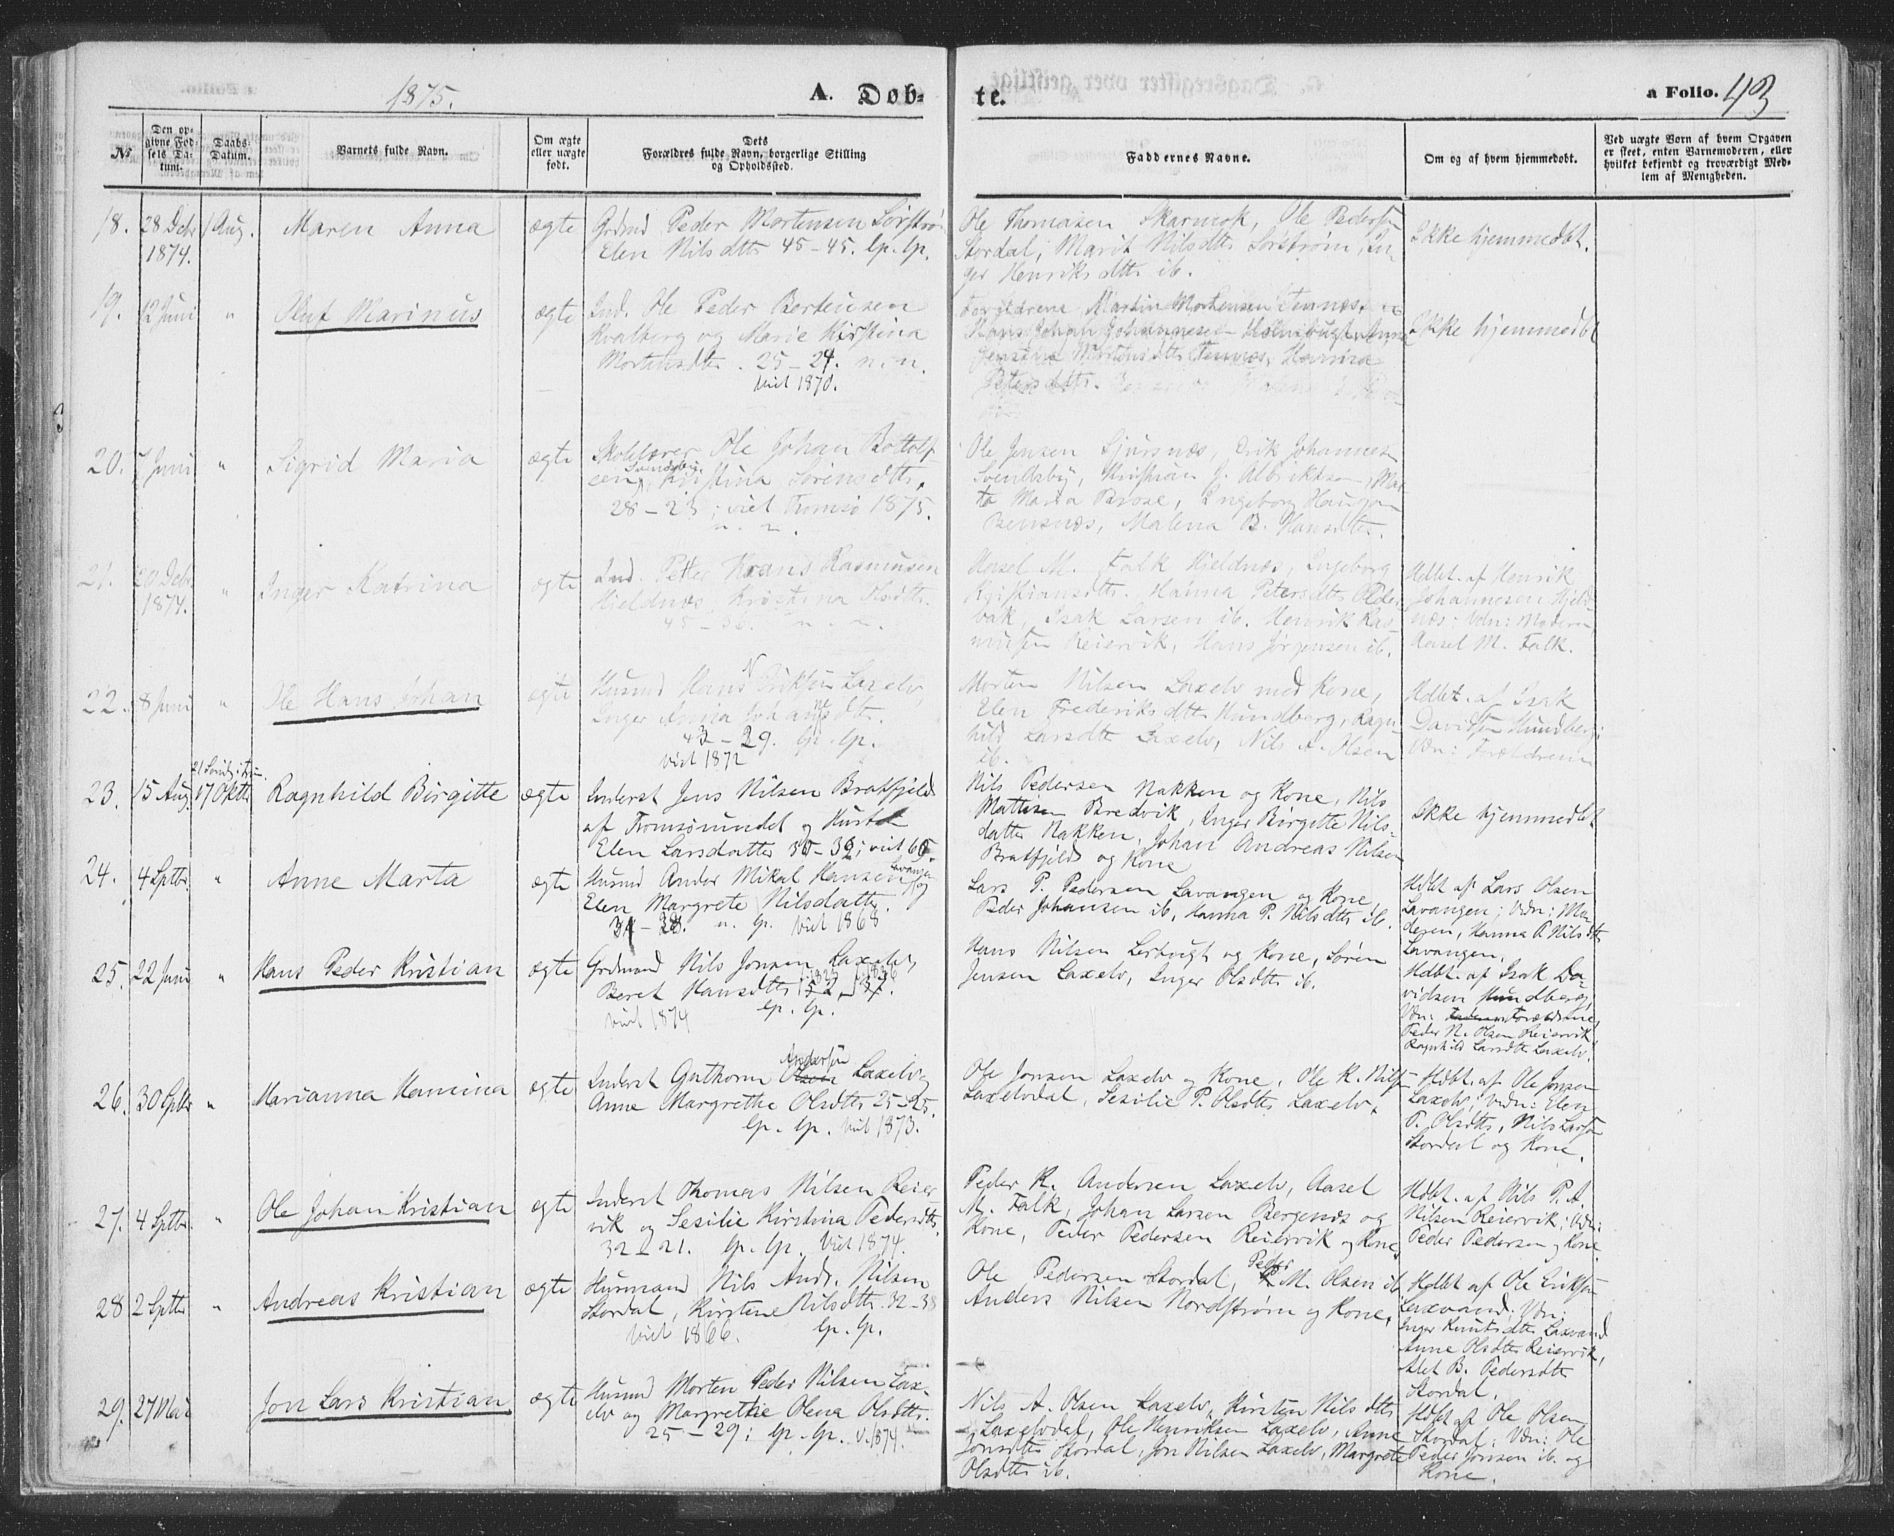 1875. A. Dob-
te. a Folio. 43
No
Den op-
givne Fød-
sels Da-
tum.
Daabs-
Datum.
Barnets fulde Navn.
Om ægte
eller uægte
født.
Dets
Forældres fulde Navn, borgerlige Stilling
og Opholdssted.
Faddernes Navne.
Om og af hvem hjemmedøbt.
Ved uægte Børn af hvem Opgaven
er skeet, enten Barnemoderen, eller
hvilket bekjendt og troværdigt Med-
lem af Menigheden.
18. 28 Debr
1874.
1 Aug.
Maren Anna
ægte
Grdmd Peder Mortensen
Elen Nilsdttr 45-45. lp. lp.
Ole Thomasen Skarmok, Ole Pedersen
Stordal, Marit Nilsdttr Sørstrøm, In-
ger Henriksdttr ib.
Ikke hjemmedbt.
19. 12 Juni "
Oluf Marinus
ægte
Ind. Ole Peder Berteusen
Kvalberg og Marie Kirstina
Mortensdttr. 25-24. n. n.
viet 1870.
Forældrene, Martin Mortensen Tennæs,
Hans Johan Johannesen Holmbugt, Anne
Jensina Mortensdttr Tennæs,
Petersdttr.
Ikke hjemmedbt
20. 7 Juni "
Sigrid Maria
ægte
Skolelærer Ole Johan Bottolf
sen Svendsby, Kristina Sørensdttr.
28-23; viet Tromsø 1875.
n. n.
Ole Jensen Sjursnæs, Erik Johannes
Svendsby, Kristian J. Albriktsen, Mar-
ta Maria Brose, Ingeborg
Bensnæs, Malena B. Hansdttr.
21. 20 Debr
1874.
"
Inger Katrina
ægte
Ind. Petter Hans Rasmusen
Hjeldnæs, Kristina
45-36. n. n.
Aasel M. Falk Hjeldnæs, Ingeborg
Kristiansdttr. Hanna Petersdttr Older
vik, Isak Larsen ib. Henrik Ras-
musen Reiervik, Hans Jørgensen ib.
Hdbt. af Henrik
Johannesen Hjeld
næs: Vdn: Moderen,
Aasel M. Falk.
22. 8 Juni "
Ole Hans Johan
ægte
Husmd Hans N Eriksen Laxelv,
Inger Anna Johannesdttr.
43-29. lp. lp.
viet 1872
Morten Nilsen Laxelv med Kone,
Elen Frederiksdttr Hundberg, Ragn-
hild Larsdttr Laxelv, Nils A. Olsen
ib.
Hdbt. af Isak
Davidsen Hundberg;
Vdn: Forældrene
23. 15 Aug.
17 Oktbr
Ragnhild Birgitte
ægte
Inderst Jens Nilsen Bratfjeld
af Tromsøsundet og Hustru
Elen Larsdatter 35-39; viet 65.
Nils Pedersen Nakken og Kone, Nils
Mattisen Bredvik, Inger Birgitte Nils-
datter Nakken, Johan Andreas Nilsen
Bratfjeld og Kone
Ikke hjemmedbt
24. 4 Sptbr "
Anne Marta
ægte
Husmd Ander Mikal Hansen Lavangen og
Elen Margrete Nilsdatter.
34-28. n. lp. viet 1868
Lars P. Pedersen Lavangen og Kone,
Peder Johansen ib, Hanna P. Nilsdttr ib.
Hdbt. af Lars Olsen
Lavangen; Vdn: Mo-
deren, Hanna P. Nilsdttr
Lavangen.
25. 22 Juni "
Hans Peder Kristian
ægte
Grdmand Nils Jonsen Laxelv,
Beret Hansdttr 52-37.
viet 1874 lp. lp.
Hans Nilsen Lerbugt og Kone, Søren
Jensen Laxelv, Inger Olsdttr ib.
Hdbt. af Isak Da-
vidsen Hundberg,
Vdn: Forældrene,
Peder N. Olsen Reiervik,
Ragnhild Larsdttr Laxelv.
26. 30 Sptbr "
Marianna Hannina
ægte
Inderst Guthorm Olsen Andersen Laxelv og
Anne Margrethe Olsdttr 25-25.
lp. lp. viet 1873.
Ole Jonsen Laxelv og Kone, Ole K. Nilsen
Laxelvdal, Sesilie P. Olsdttr Laxelv.
Hdbt. af Ole Jonsen
Laxelv; Vdn: Elen
P. Olsdttr, Nils Larsen
Stordal og Kone.
27. 4 Sptbr "
Ole Johan Kristian
ægte
Inderst Thomas Nilsen Reier-
vik og Sesilie Kirstina Pedersdttr
32-21. lp. lp. Viet 1874.
Peder K. Andersen Laxelv, Aasel
M. Falk, Johan Larsen Bergenæs og
Kone, Peder Pedersen Reiervik og Kone.
Hdbt. af Nils P. A.
Nilsen Reiervik; Vdn:
Peder Pedersen og Kone.
28 2 Sptbr "
Andreas Kristian
ægte
Husmand Nils Andr. Nilsen
Stordal, Kirstine Nilsdttr. 32-38
viet 1866. lp. lp.
Ole Pedersen Stordal, Peder M. Olsen ib
Anders Nilsen Nordstrøm og Kone.
Hdbt af Ole Eriksen
Laxvand; Vdn:
Inger Knutsdttr Laxvand
Anne Olsdttr Reiervik,
Alet B. Pedersdttr
Stordal.
29. 27 Mai
Jon Lars Kristian
ægte
Husmd Morten Peder Nilsen Lax-
elv og Margrethe Olena Olsdttr.
25-29: lp. lp. v. 1874.
Nils A. Olsen Laxelv, Kirsten Nilsdttr
Laxelvdal, Ole Henriksen Laxelv, Anne
Jonsdttr Stordal, Jon Nilsen Laxelv, Margrete
Olsdttr ib.
Hdbt af Ole Olsen
Stordal; Vdn: Ole
Peder Jonsen ib. og
Kone.